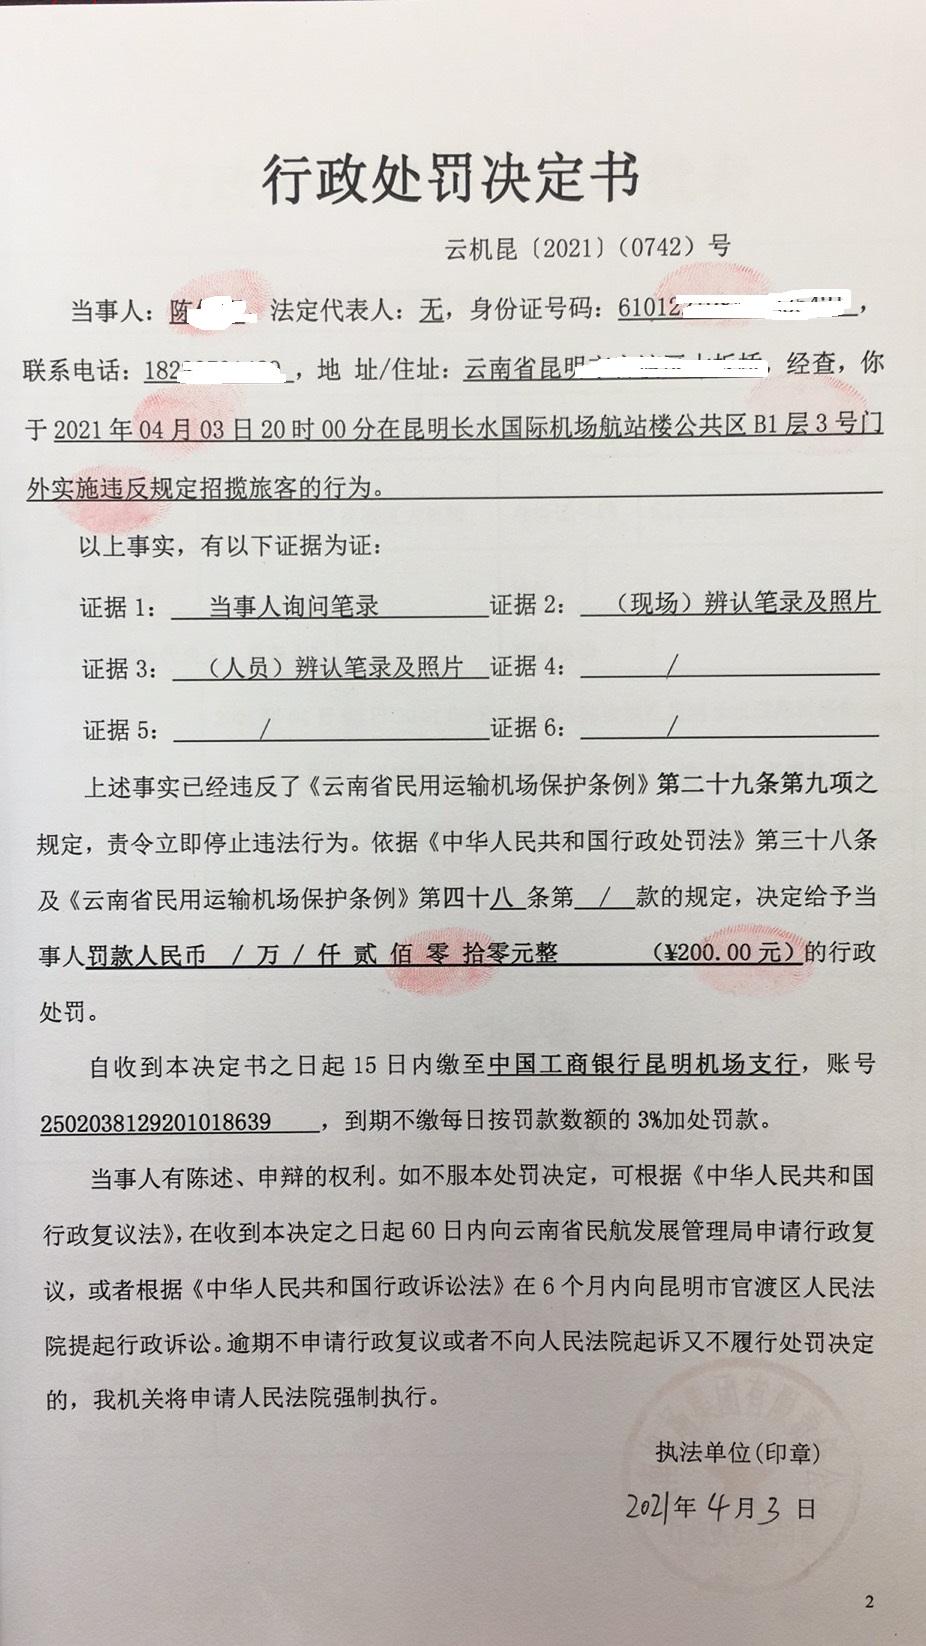 行政处罚决定书
云机昆〔2021〕（0742）号
当事人：陈 法定代表人：无，身份证号码：6101 ，
联系电话：182 ，地 址/住址：云南省昆明 ，经查，你
于 2021 年 04 月 03 日 20 时 00 分在昆明长水国际机场航站楼公共区 B1 层 3 号门
外实施违反规定招揽旅客的行为。
以上事实，有以下证据为证：
证据 1： 当事人询问笔录 证据 2： （现场）辨认笔录及照片
证据 3： （人员）辨认笔录及照片 证据 4： /
证据 5： / 证据 6： /
上述事实已经违反了《云南省民用运输机场保护条例》第二十九条第九项之
规定，责令立即停止违法行为。依据《中华人民共和国行政处罚法》第三十八条
及《云南省民用运输机场保护条例》第四十八 条第 / 款的规定，决定给予当
事人罚款人民币 / 万 / 仟 贰 佰 零 拾零元整 （¥200.00 元）的行政
处罚。
自收到本决定书之日起 15 日内缴至中国工商银行昆明机场支行，账号
2502038129201018639 ，到期不缴每日按罚款数额的 3%加处罚款。
当事人有陈述、申辩的权利。如不服本处罚决定，可根据《中华人民共和国
行政复议法》，在收到本决定之日起 60 日内向云南省民航发展管理局申请行政复
议，或者根据《中华人民共和国行政诉讼法》在 6 个月内向昆明市官渡区人民法
院提起行政诉讼。逾期不申请行政复议或者不向人民法院起诉又不履行处罚决定
的，我机关将申请人民法院强制执行。
执法单位(印章)
2021年 4 月 3 日
2